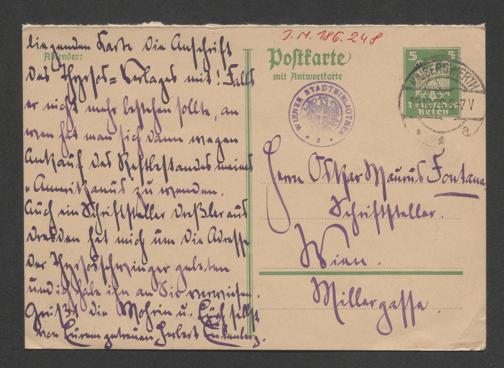 J.N. 186.248
Absender:
liegenden Karte die Anschrift
des Thyrsos-Verlages mit! Falls
er nicht mehr bestehen sollte, an
wen hat man sich dann wegen
Ankauf des Restbestands meines
zu wenden.
Auch ein Schriftsteller Dreßler aus
Dresden hat mich um die Adresse
der gebeten
und ich habe ihn an Sie verwiesen.
Grüßt die Mohrin u. Euch selbst
von Eurem getreuen Herbert Eulenberg.
Postkarte
mit Antwortkarte
5 5
Deutsches
Reich
WIENER STADTBIBLIOTHEK
KAISERSWERTH
Herrn Oskar Maurus Fontana
Schriftsteller.
Wien.
Millergasse.